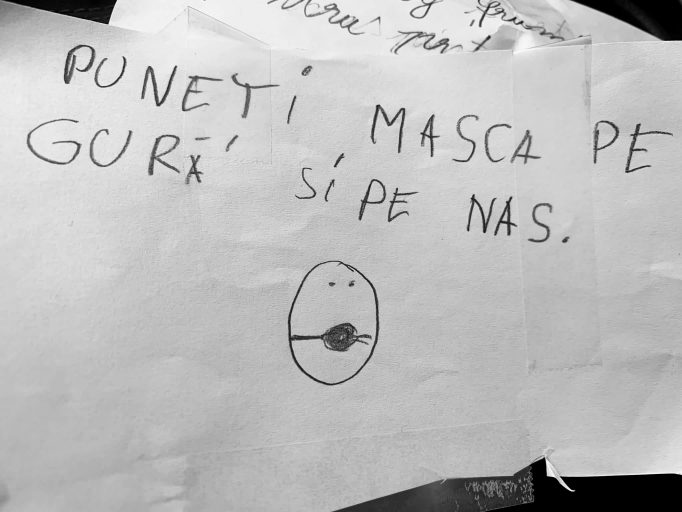 PUNEȚI MASCA PE
GURĂ SI PE NAS.